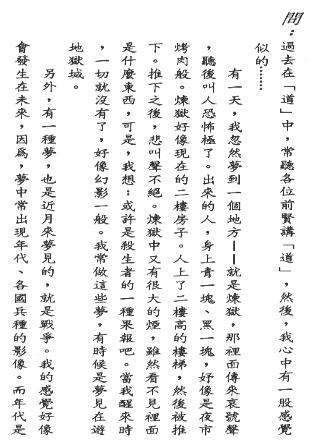 問：過去在「道」中，常聽各位前賢講「道」，然後，我心中有一股感覺
似的……
有一天，我忽然夢到一個地方——就是煉獄，那裡面傳來哀號聲
，聽後叫人恐怖極了。出來的人，身上青一塊、黑一塊，好像是夜市
烤肉般。煉獄好像現在的二樓房子。人上了二樓高的樓梯，然後被推
下。推下之後，悲叫聲不絕。煉獄中又有很大的煙，雖然看不見裡面
是什麼東西，可是，我想：或許是殺生者的一種果報吧。當我醒來時
，一切就沒有了，好像幻影一般。我常做這些夢，有時候是夢見在遊
地獄城。
另外，有一種夢，也是近月來夢見的，就是戰爭。我的感覺好像
會發生在未來，因爲，夢中常出現年代、各國兵種的影像。而年代是